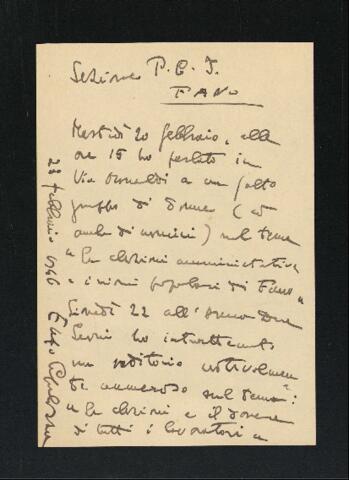 Sezione P.C.I.
FANO
Martedì 20 febbraio, alle
ore 15 ho parlato in
Via a un folto
gruppo di donne (ed
anche di uomini) sul tema
"Le elezioni amministrative
e i rioni popolari di Fano"
Giovedì 22 all'
ho intrattenuto
un uditorio notevolmen
te numeroso sul tema:
"Le elezioni e il dovere
di tutti i lavoratori a
23 febbraio 1946